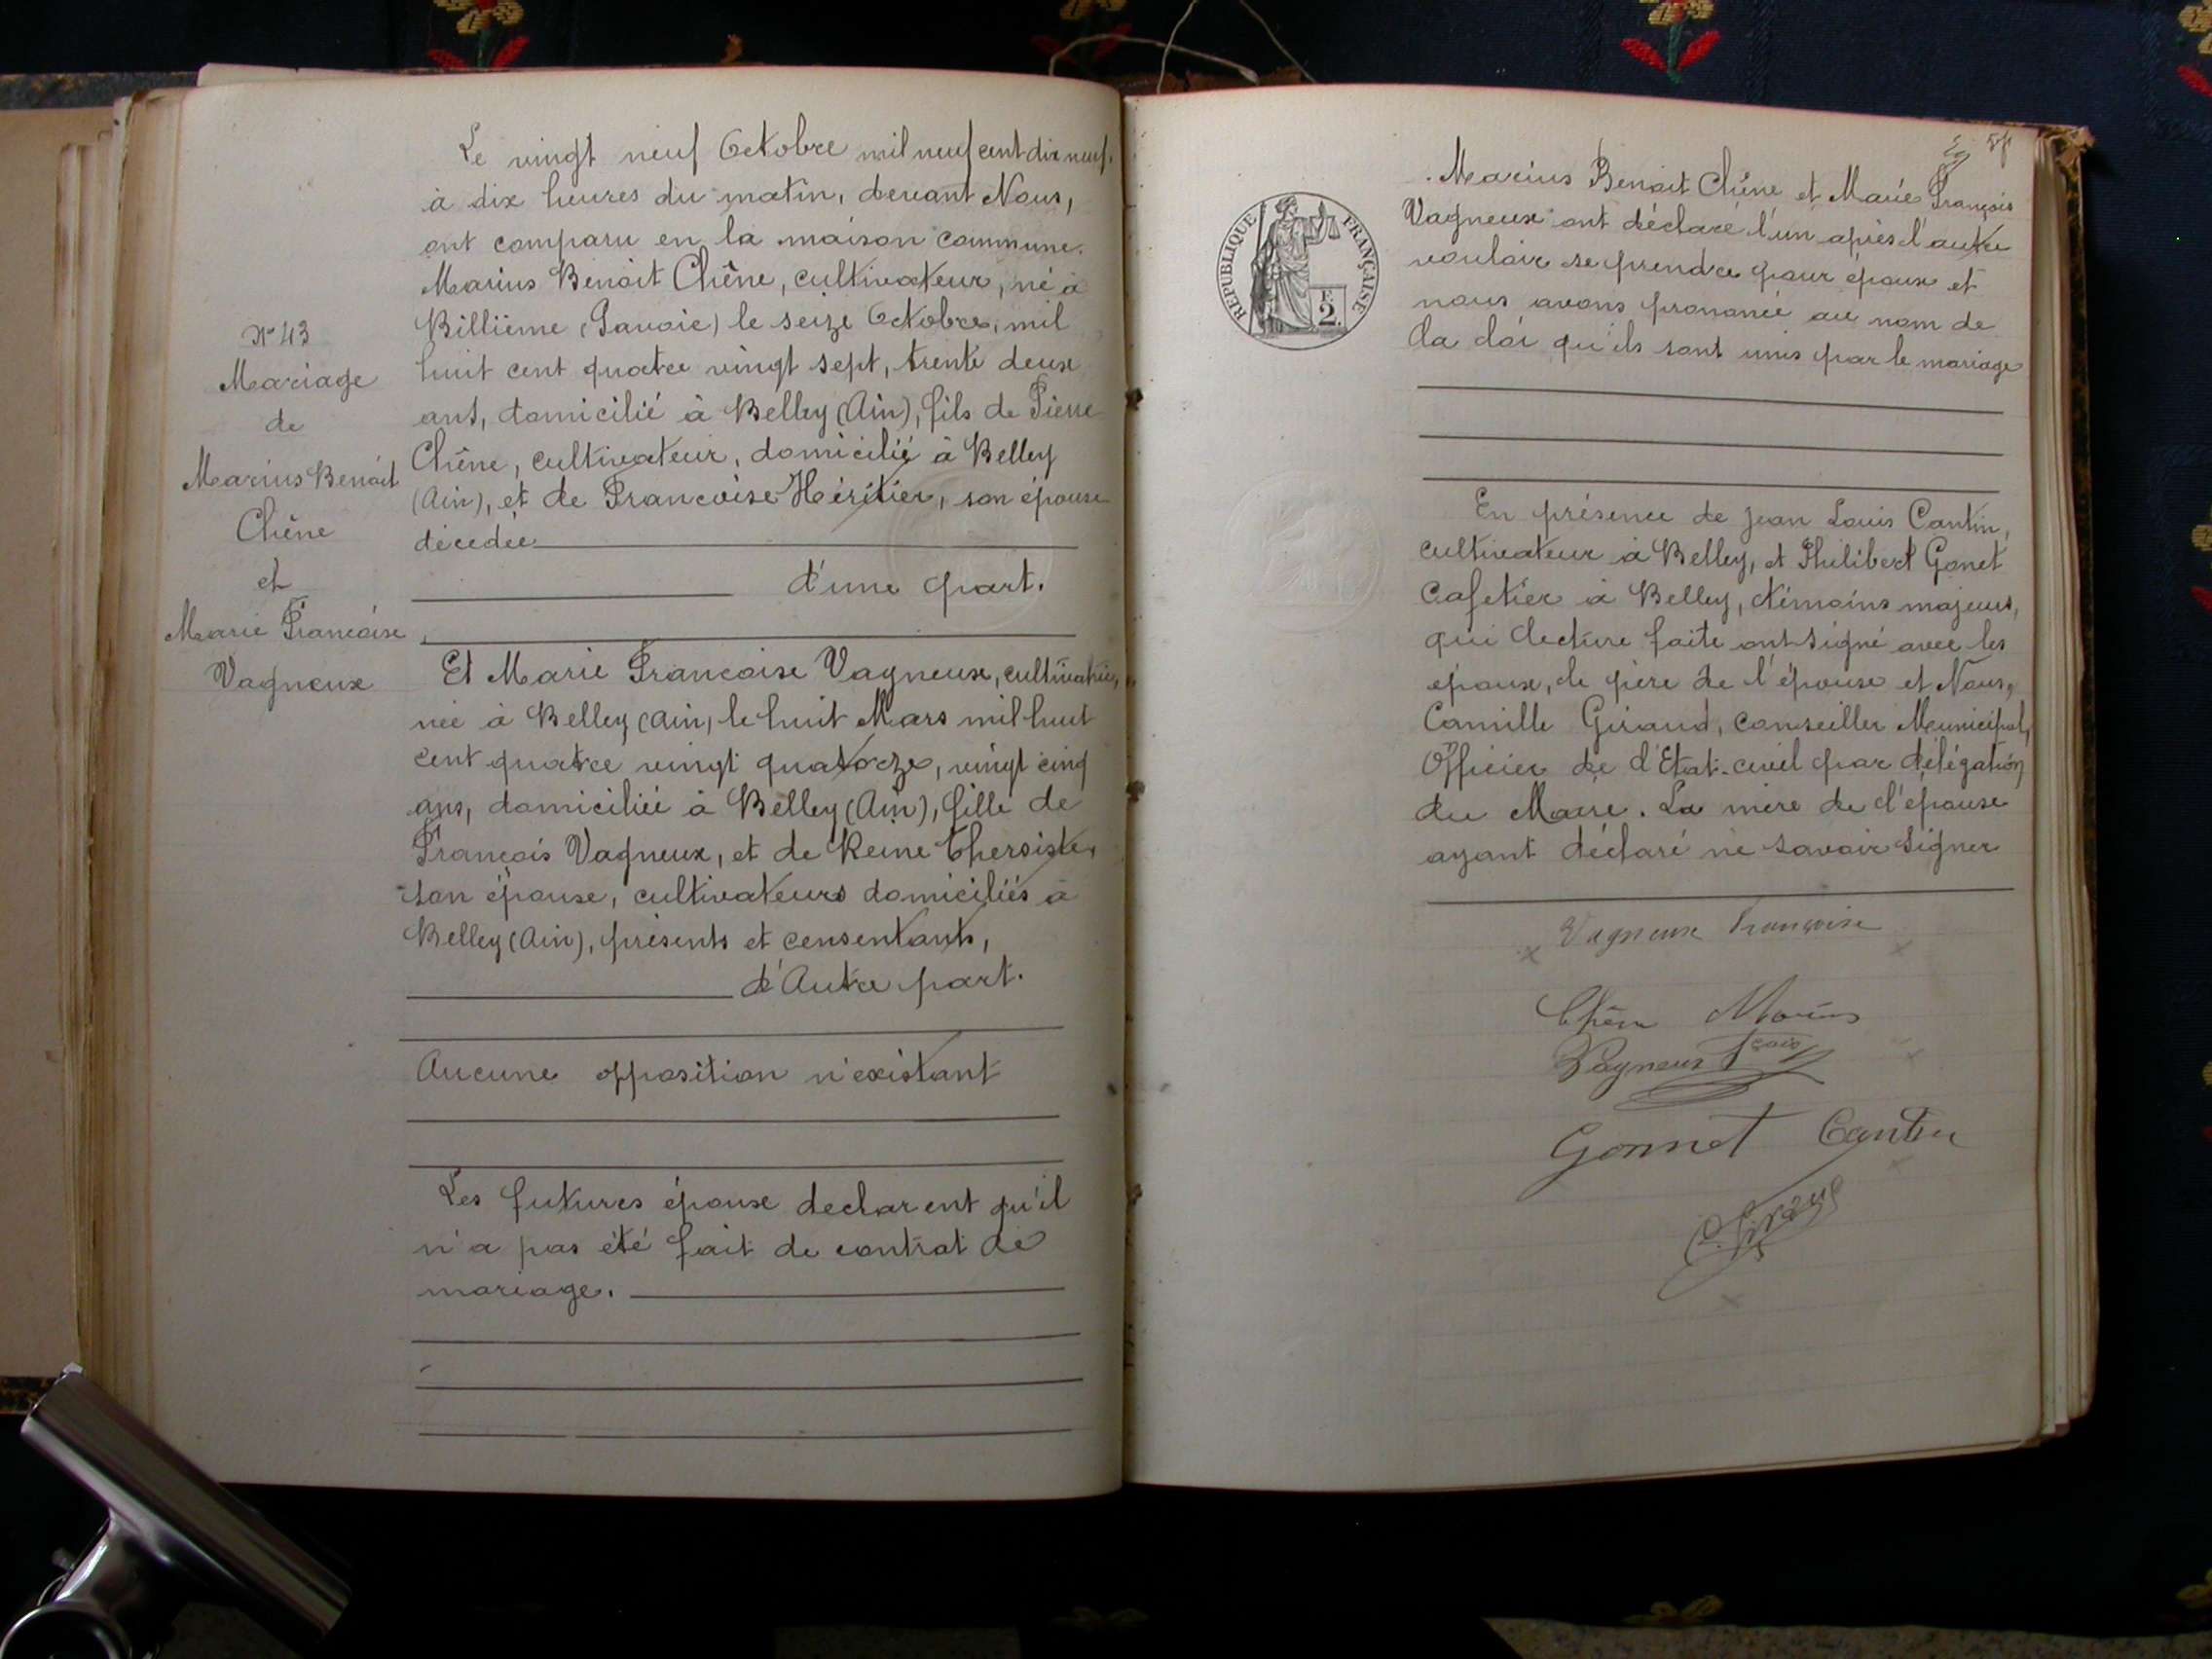 N° 43
Mariage
de
Marius Benoit
Chêne
et
Marie Francoise
Vagneux
Le vingt neuf Octobre mil neuf cent dix neuf.
à dix heures du matin, devant Nous,
ont comparu en la maison commune.
Marius Benoit Chêne, cultivateur, né à
Billième (Savoie) le seize Octobre, mil
huit cent quatre vingt sept, trente deux
ans, domicilié à Belley (Ain), fils de Pierre
Chêne, cultivateur, domicilié à Belley
(Ain), et de Francoise Héritier, son épouse
décédée
d'une part.
Et Marie Francoise Vagneux, cultivatrice,
née à Belley (Ain, le huit Mars mil huit
cent quatre vingt quatorze, vingt cinq
ans, domiciliée à Belley (Ain), fille de
François Vagneux, et de Reine Thersiste,
son épouse, cultivateurs domiciliés à
Belley (Ain), présents et consentants,
d'Autre part.
Aucune opposition n'existant
Les futures époux declarent qu'il
n'a pas été fait de contrat de
mariage.
REPUBLIQUE FRANÇAISE
2F
. Marius Benoit Chêne et Marie François
Vagneux ont déclare l'un après l'autre
vouloir se prendre pour époux et
nous avons prononcé au nom de
la loi qu'ils sont unis par le mariage
En présence de Jean Louis Cantin,
cultivateur à Belley, et Philibert Gonet
Cafetier à Belley, témoins majeurs,
qui lecture faite ont signé avec les
époux, le père de l'épouse et Nous,
Camille Giraud, Conseiller Municipal,
Officier de l'Etat-civil par délégation
du Maire. La mère de l'épouse
ayant déclaré ne savoir signer
Vagneux Françoise
Chêne Marius
Vagneux fçois
Gonnet Cantin
C. Giraud